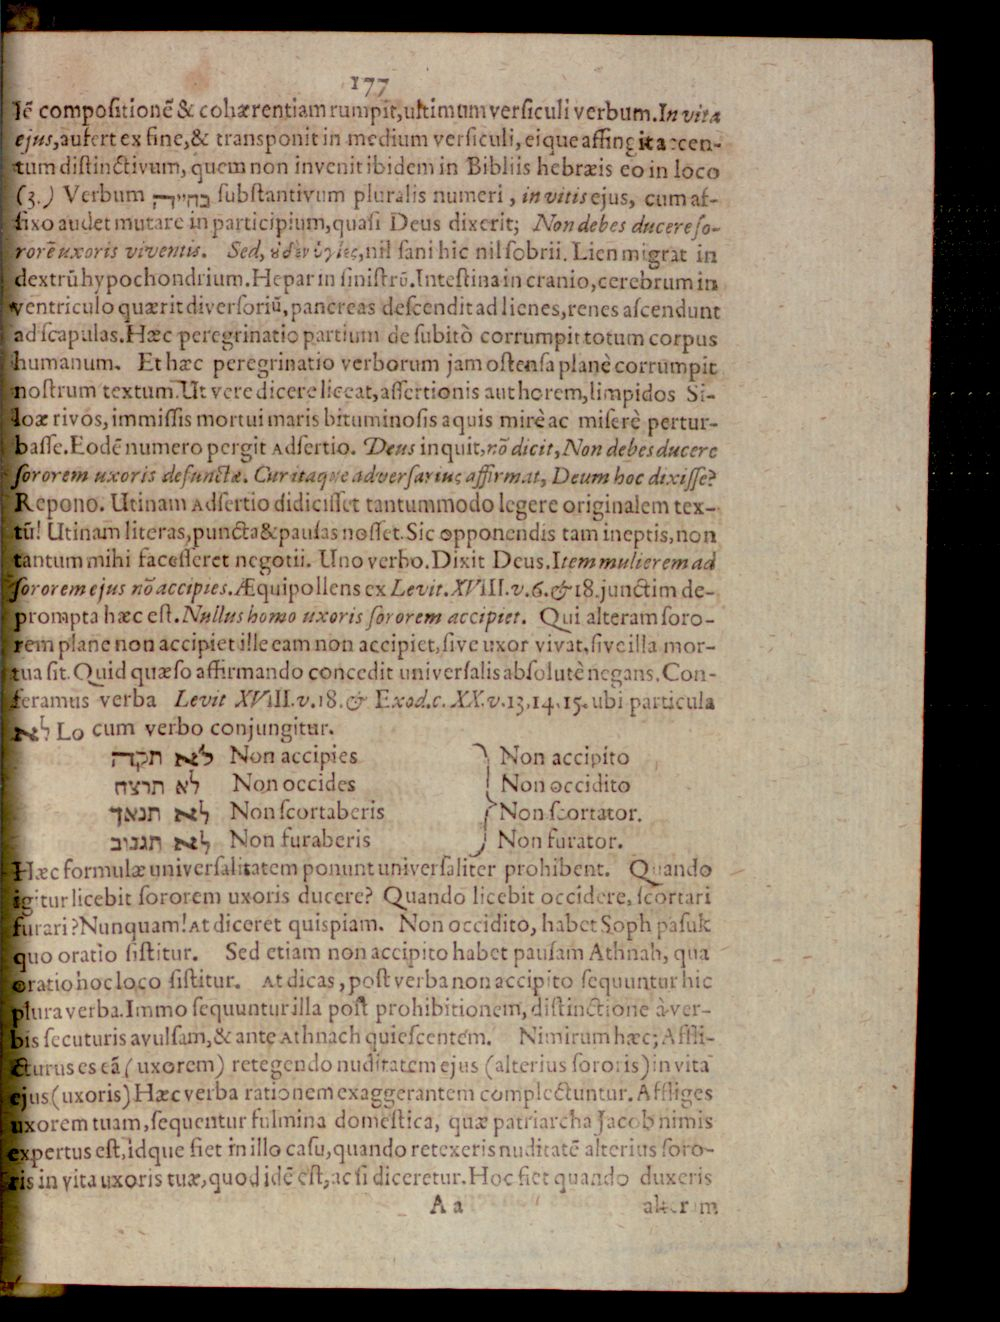 177
lē compoſitionē & cohærentiam rumpit, ultimum verſiculi verbum. In vita
ejus, aufert ex fine, & transponit in medium verſiculi, eique affingit accen-
tum diſtinctivum, quem non invenit ibidem in Bibliis hebræis eo in loco
(3.) Verbum בחייה ſubſtantivum pluralis numeri, in vitis ejus, cum af-
fixo audet mutare in participium, quaſi Deus dixerit; Non debes ducere ſo-
rorē uxoris viventis. Sed, ὐδὲν ὑγιὲς, nil ſani hic nil ſobrii. Lien migrat in
dextrū hypochondrium. Hepar in ſiniſtrū. Inteſtina in cranio, cerebrum in
ventriculo quærit diverſoriū, pancreas deſcendit ad lienes, renes aſcendunt
ad ſcapulas. Hæc peregrinatio partium de ſubitò corrumpit totum corpus
humanum. Et hæc peregrinatio verborum jam oſtenſa planè corrumpit
noſtrum textum. Ut vere dicere liceat, aſſertionis authorem, limpidos Si-
loæ rivos, immiſſis mortui maris bituminoſis aquis mirè ac miſerè pertur-
baſſe. Eodē numero pergit Adſertio. Deus inquit, nō dicit, Non debes ducere
ſororem uxoris defunctæ. Cur itaque adverſarius affirmat, Deum hoc dixiſſe?
Repono. Utinam Adſertio didiciſſet tantummodo legere originalem tex-
tū! Utinam literas, puncta & pauſas noſſet. Sic opponendis tam ineptis, non
tantum mihi faceſſeret negotii. Uno verbo. Dixit Deus. Item mulierem ad
ſororem ejus nō accipies. Æquipollens ex Levit. XVIII. v. 6. & 18. junctim de-
prompta hæc eſt. Nullus homo uxoris ſororem accipiet. Qui alteram ſoro-
rem plane non accipiet ille eam non accipiet, ſive uxor vivat, ſive illa mor-
tua ſit. Quid quæſo affirmando concedit univerſalis abſolutè negans. Con-
feramus verba Levit XVIII. v. 18. & Exod. c. XX. v. 13. 14. 15. ubi particula
לא Lo cum verbo conjungitur.
לא תקח Non accipies } Non accipito
לא תרצח Non occides } Non occidito
לא תנאף Non ſcortaberis } Non ſcortator.
לא תגנוב Non furaberis } Non furator.
Hæc formulæ univerſalitatem ponunt univerſaliter prohibent. Quando
igitur licebit ſororem uxoris ducere? Quando licebit occidere, ſcortari
furari? Nunquam! At diceret quispiam. Non occidito, habet Soph paſuk
quo oratio ſiſtitur. Sed etiam non accipito habet pauſam Athnah, qua
oratio hoc loco ſiſtitur. At dicas, poſt verba non accipito ſequuntur hic
plura verba. Immo ſequuntur illa poſt prohibitionem, diſtinctione à ver-
bis ſecuturis avulſam, & ante Athnach quieſcentem. Nimirum hæc; Affli-
cturus es eā (uxorem) retegendo nuditatem ejus (alterius ſororis) in vita
ejus (uxoris) Hæc verba rationem exaggerantem complectuntur. Affliges
uxorem tuam, ſequentur fulmina domeſtica, quæ patriarcha Jacob nimis
expertus eſt, idque fiet in illo caſu, quando retexeris nuditatē alterius ſoro-
ris in vita uxoris tuæ, quod idē eſt, ac ſi diceretur. Hoc fiet quando duxeris
A a alteram